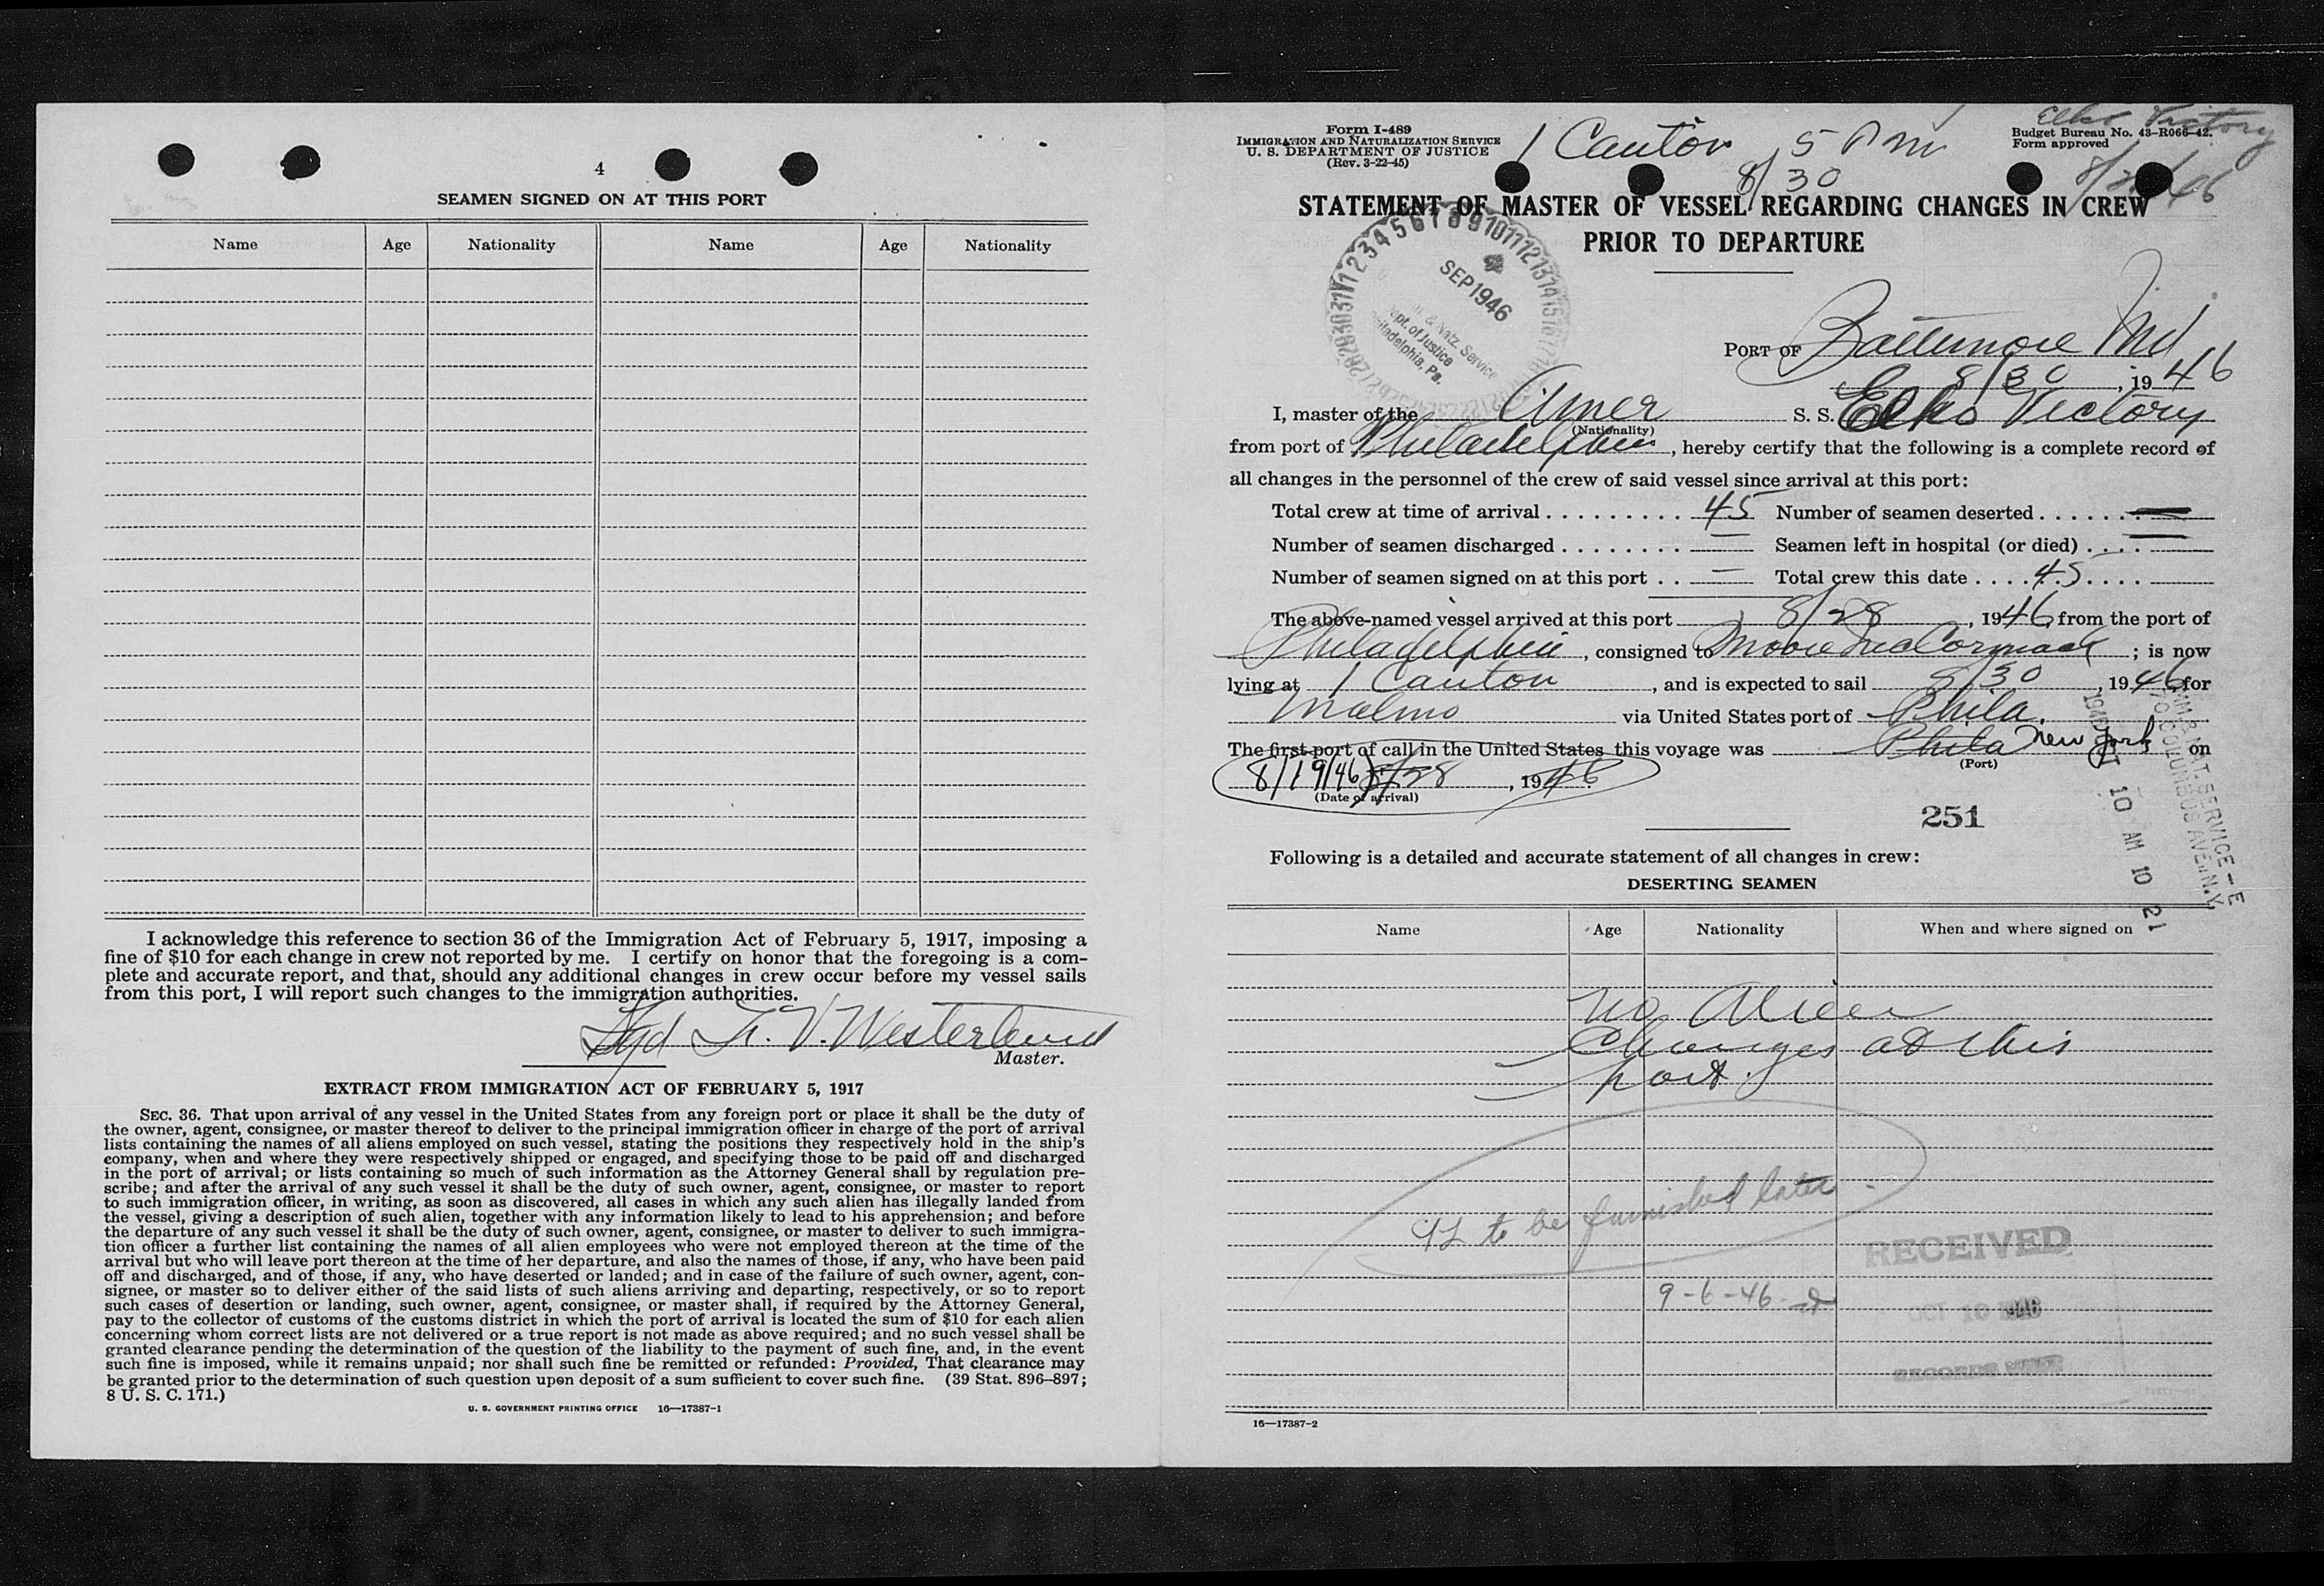 4
SEAMEN SIGNED ON AT THIS PORT
Name Age Nationality Name Age Nationality
I acknowledge this reference to section 36 of the Immigration Act of February 5, 1917, imposing a
fine of $10 for each change in crew not reported by me. I certify on honor that the foregoing is a com-
plete and accurate report, and that, should any additional changes in crew occur before my vessel sails
from this port, I will report such changes to the immigration authorities.
V. Westerlund
Master.
EXTRACT FROM IMMIGRATION ACT OF FEBRUARY 5, 1917
SEC. 36. That upon arrival of any vessel in the United States from any foreign port or place it shall be the duty of
the owner, agent, consignee, or master thereof to deliver to the principal immigration officer in charge of the port of arrival
lists containing the names of all aliens employed on such vessel, stating the positions they respectively hold in the ship's
company, when and where they were respectively shipped or engaged, and specifying those to be paid off and discharged
in the port of arrival; or lists containing so much of such information as the Attorney General shall by regulation pre-
scribe; and after the arrival of any such vessel it shall be the duty of such owner, agent, consignee, or master to report
to such immigration officer, in writing, as soon as discovered, all cases in which any such alien has illegally landed from
the vessel, giving a description of such alien, together with any information likely to lead to his apprehension; and before
the departure of any such vessel it shall be the duty of such owner, agent, consignee, or master to deliver to such immigra-
tion officer a further list containing the names of all alien employees who were not employed thereon at the time of the
arrival but who will leave port thereon at the time of her departure, and also the names of those, if any, who have been paid
off and discharged, and of those, if any, who have deserted or landed; and in case of the failure of such owner, agent, con-
signee, or master so to deliver either of the said lists of such aliens arriving and departing, respectively, or so to report
such cases of desertion or landing, such owner, agent, consignee, or master shall, if required by the Attorney General,
pay to the collector of customs of the customs district in which the port of arrival is located the sum of $10 for each alien
concerning whom correct lists are not delivered or a true report is not made as above required; and no such vessel shall be
granted clearance pending the determination of the question of the liability to the payment of such fine, and, in the event
such fine is imposed, while it remains unpaid; nor shall such fine be remitted or refunded: Provided, That clearance may
be granted prior to the determination of such question upon deposit of a sum sufficient to cover such fine. (39 Stat. 896–897;
8 U. S. C. 171.)
U. S. GOVERNMENT PRINTING OFFICE 16—17387-1
Form I-489
IMMIGRATION AND NATURALIZATION SERVICE
U. S. DEPARTMENT OF JUSTICE
(Rev. 3-22-45)
1 Canton 5 Pm
8/30
Elko Victory
Budget Bureau No. 43-R066-42.
Form approved
STATEMENT OF MASTER OF VESSEL REGARDING CHANGES IN CREW
PRIOR TO DEPARTURE
SEP 1946
Natz. Service
Dept. of Justice
Philadelphia, Pa.
PORT OF Baltimore Md
8/30, 1946
I, master of the Amer S. S. Elko Victory
(Nationality)
from port of Philadelphia, hereby certify that the following is a complete record of
all changes in the personnel of the crew of said vessel since arrival at this port:
Total crew at time of arrival 45 Number of seamen deserted —
Number of seamen discharged — Seamen left in hospital (or died) —
Number of seamen signed on at this port — Total crew this date 45
The above-named vessel arrived at this port 8/28, 1946, from the port of
Philadelphia, consigned to Moore McCormack; is now
lying at 1 Canton, and is expected to sail 8/30, 1946, for
Malmo via United States port of Phila.
The first port of call in the United States this voyage was Phila New York on
(Port)
8/19/46 8/28, 1946
(Date of arrival)
251
IMM. & NAT. SERVICE – E
70 COLUMBUS AVE. N.Y.
1946 OCT 10 AM 10 21
Following is a detailed and accurate statement of all changes in crew:
DESERTING SEAMEN
Name Age Nationality When and where signed on
No Alien
Changes at this
port.
to be furnished later
RECEIVED
9-6-46
OCT 10 1946
16—17387-2